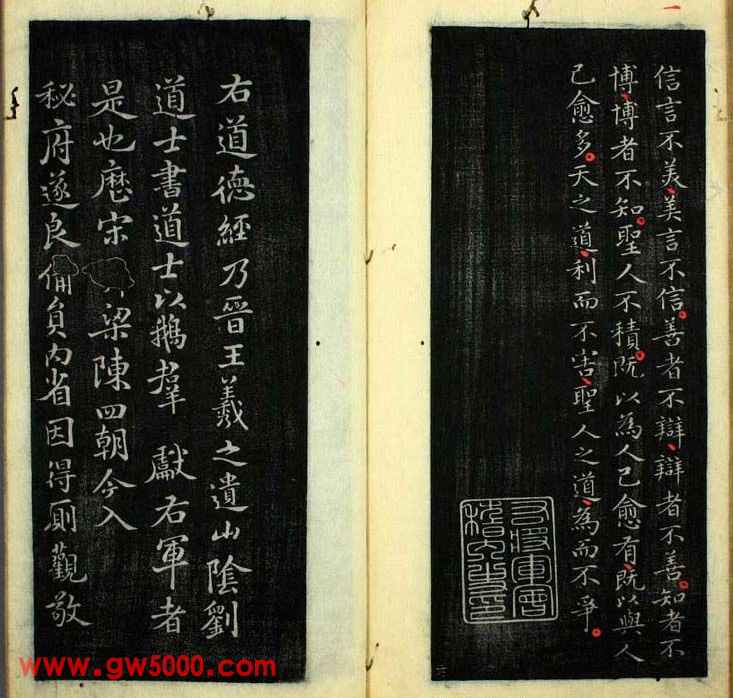 信言不美美言不信善者不辯辯者不善知者不
博博者不知聖人不積既以為人己愈有既以與人
己愈多天之道利而不害聖人之道為而不爭
右道德經乃晉王羲之遺山陰劉
道士書道士以鵝羣獻右軍者
是也歷宋梁陳四朝今入
秘府遂良備員內省因得厠觀敬
www.gw5000.com